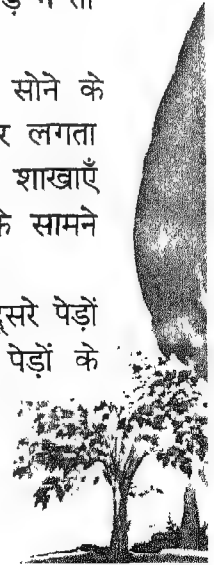 सोने के
र लगता
शाखाएँ
के सामने
दूसरे पेड़ों
पेड़ों के